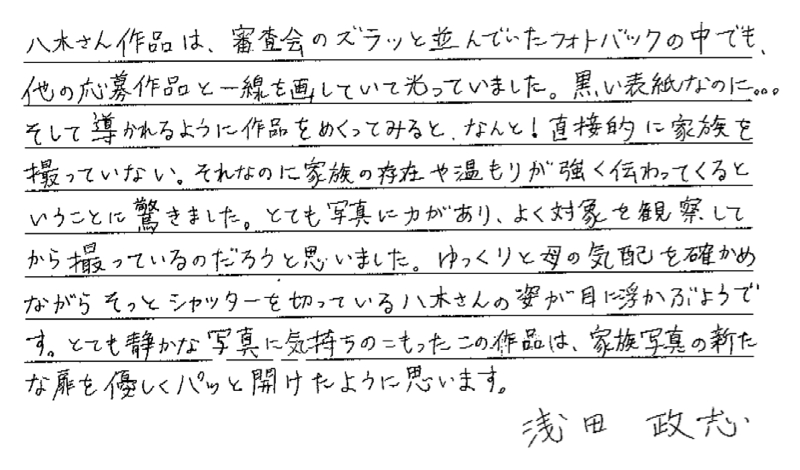 八木さん作品は、審査会のズラッと並んでいたフォトバックの中でも、
他の応募作品と一線を画していて光っていました。黒い表紙なのに...
そして導かれるように作品をめくってみると、なんと！直接的に家族を
撮っていない。それなのに家族の存在や温もりが強く伝わってくると
いうことに驚きました。とても写真に力があり、よく対象を観察して
から撮っているのだろうと思いました。ゆっくりと母の気配を確かめ
ながらそっとシャッターを切っている八木さんの姿が目に浮かぶようで
す。とても静かな写真に気持ちのこもったこの作品は、家族写真の新た
な扉を優しくパッと開けたように思います。
浅田 政志